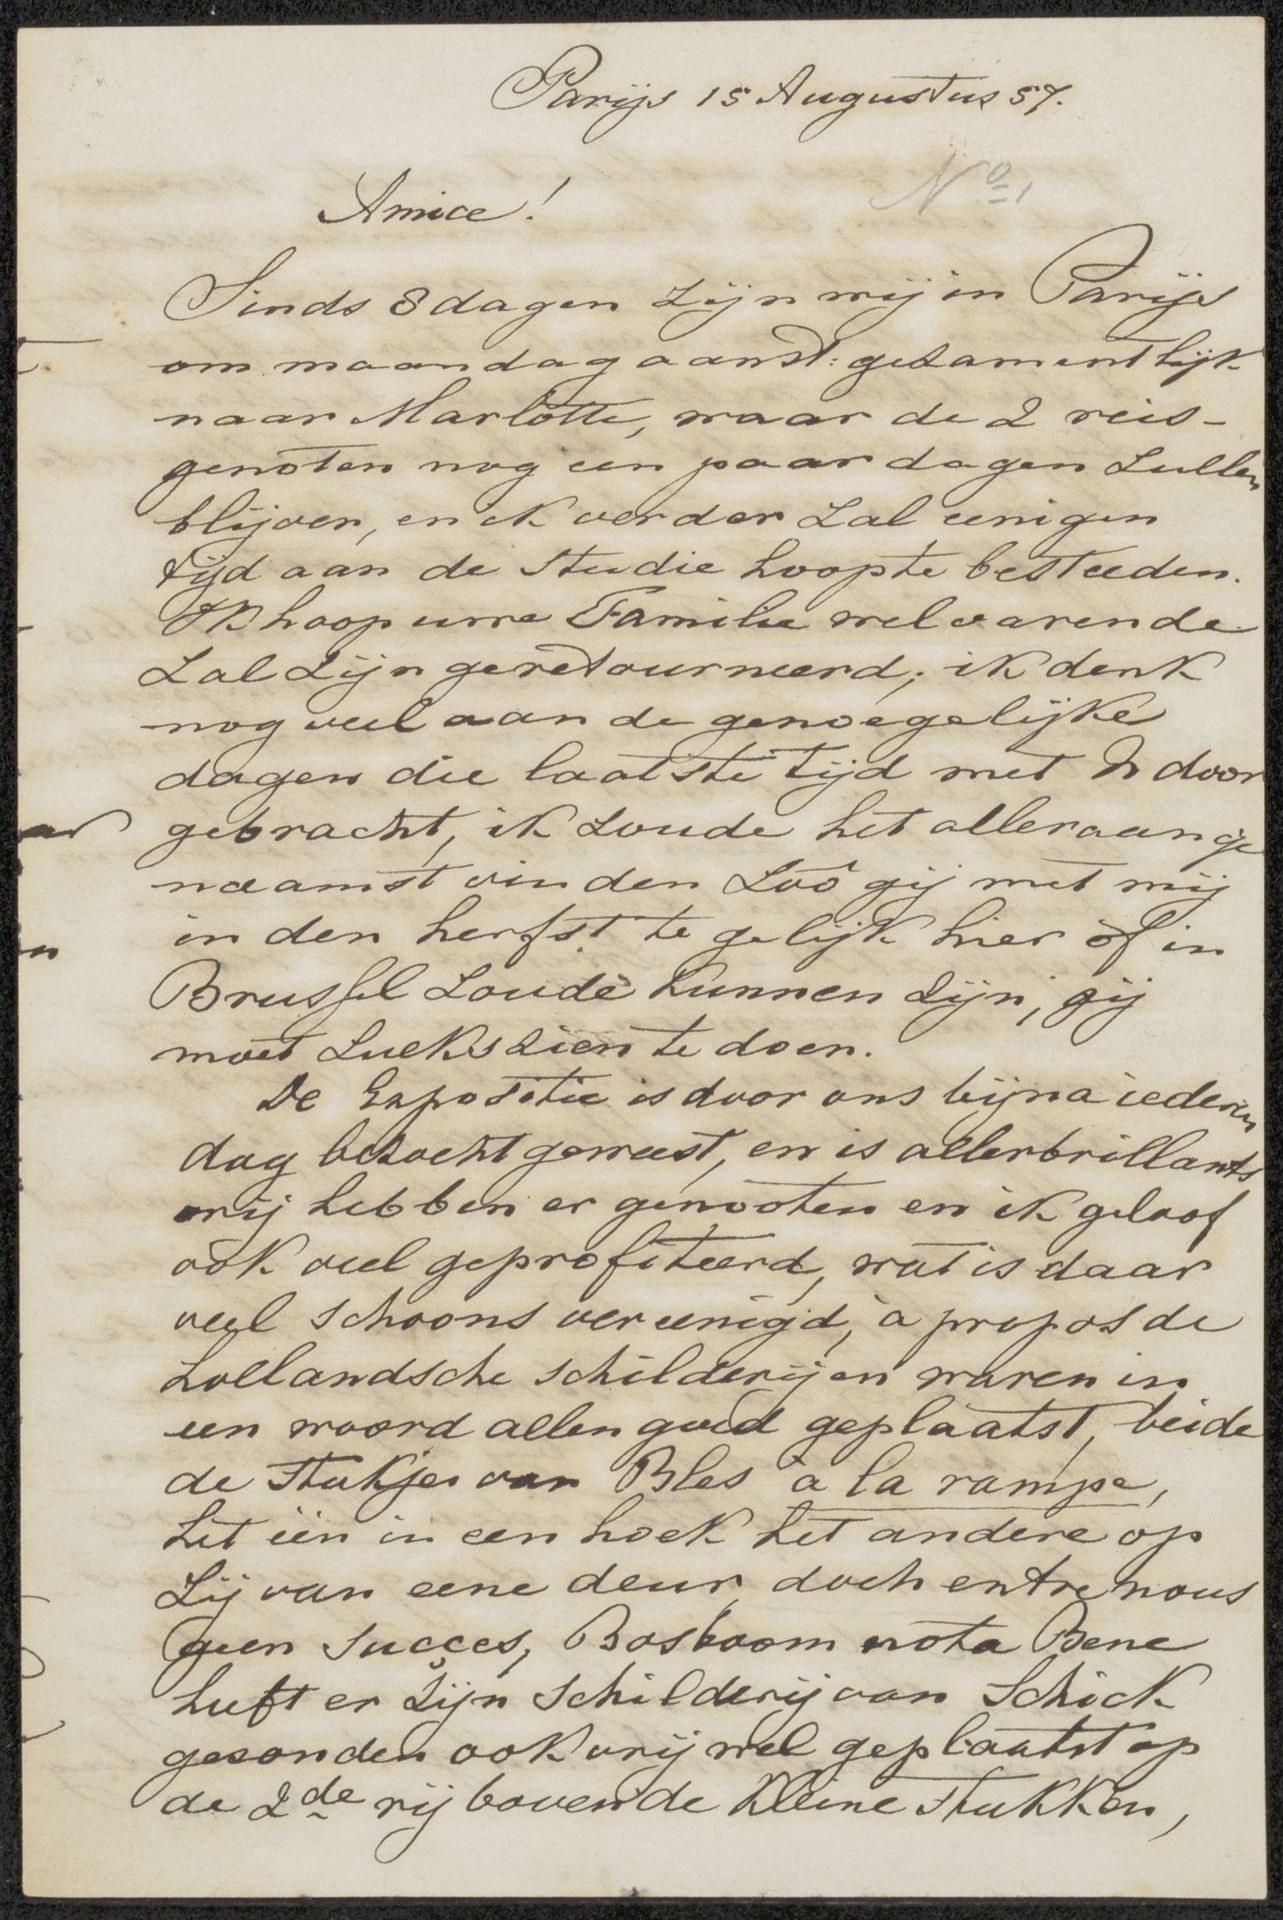 Parijs 15 Augustus 57.
No 1
Amice!
Sinds 8 dagen zijn wij in Parijs
om maandag aanst: gezamentlijk
naar Marlotte, waar de 2 reis-
genoten nog een paar dagen zullen
blijven, en ik verder zal eenigen
tijd aan de studie hoop te besteeden.
Ik hoop uwe Familie welvarende
zal zijn geretourneerd; ik denk
nog veel aan de genoegelijke
dagen die laatste tijd met U door
gebracht, ik zoude het alleraange
naamst vinden zoo gij met mij
in den herfst te gelijk hier of in
Brussel zoude kunnen zijn, gij
moet zulks zien te doen.
De Expositie is door ons bijna iederen
dag bezocht geweest, en is allerbrillants
wij hebben er genooten en ik geloof
ook veel geprofiteerd, wat is daar
veel schoons vereenigd, à propos de
Hollandsche schilderijen waren in
een woord allen goed geplaatst, beide
de stukjes van Bles à la rampe,
het één in een hoek het andere op
zij van eene deur, doch entre nous
geen succes, Bosboom nota Bene
heeft er zijn schilderij van Schick
gezonden ook vrij wel geplaatst op
de 2de rij boven de kleine stukken,